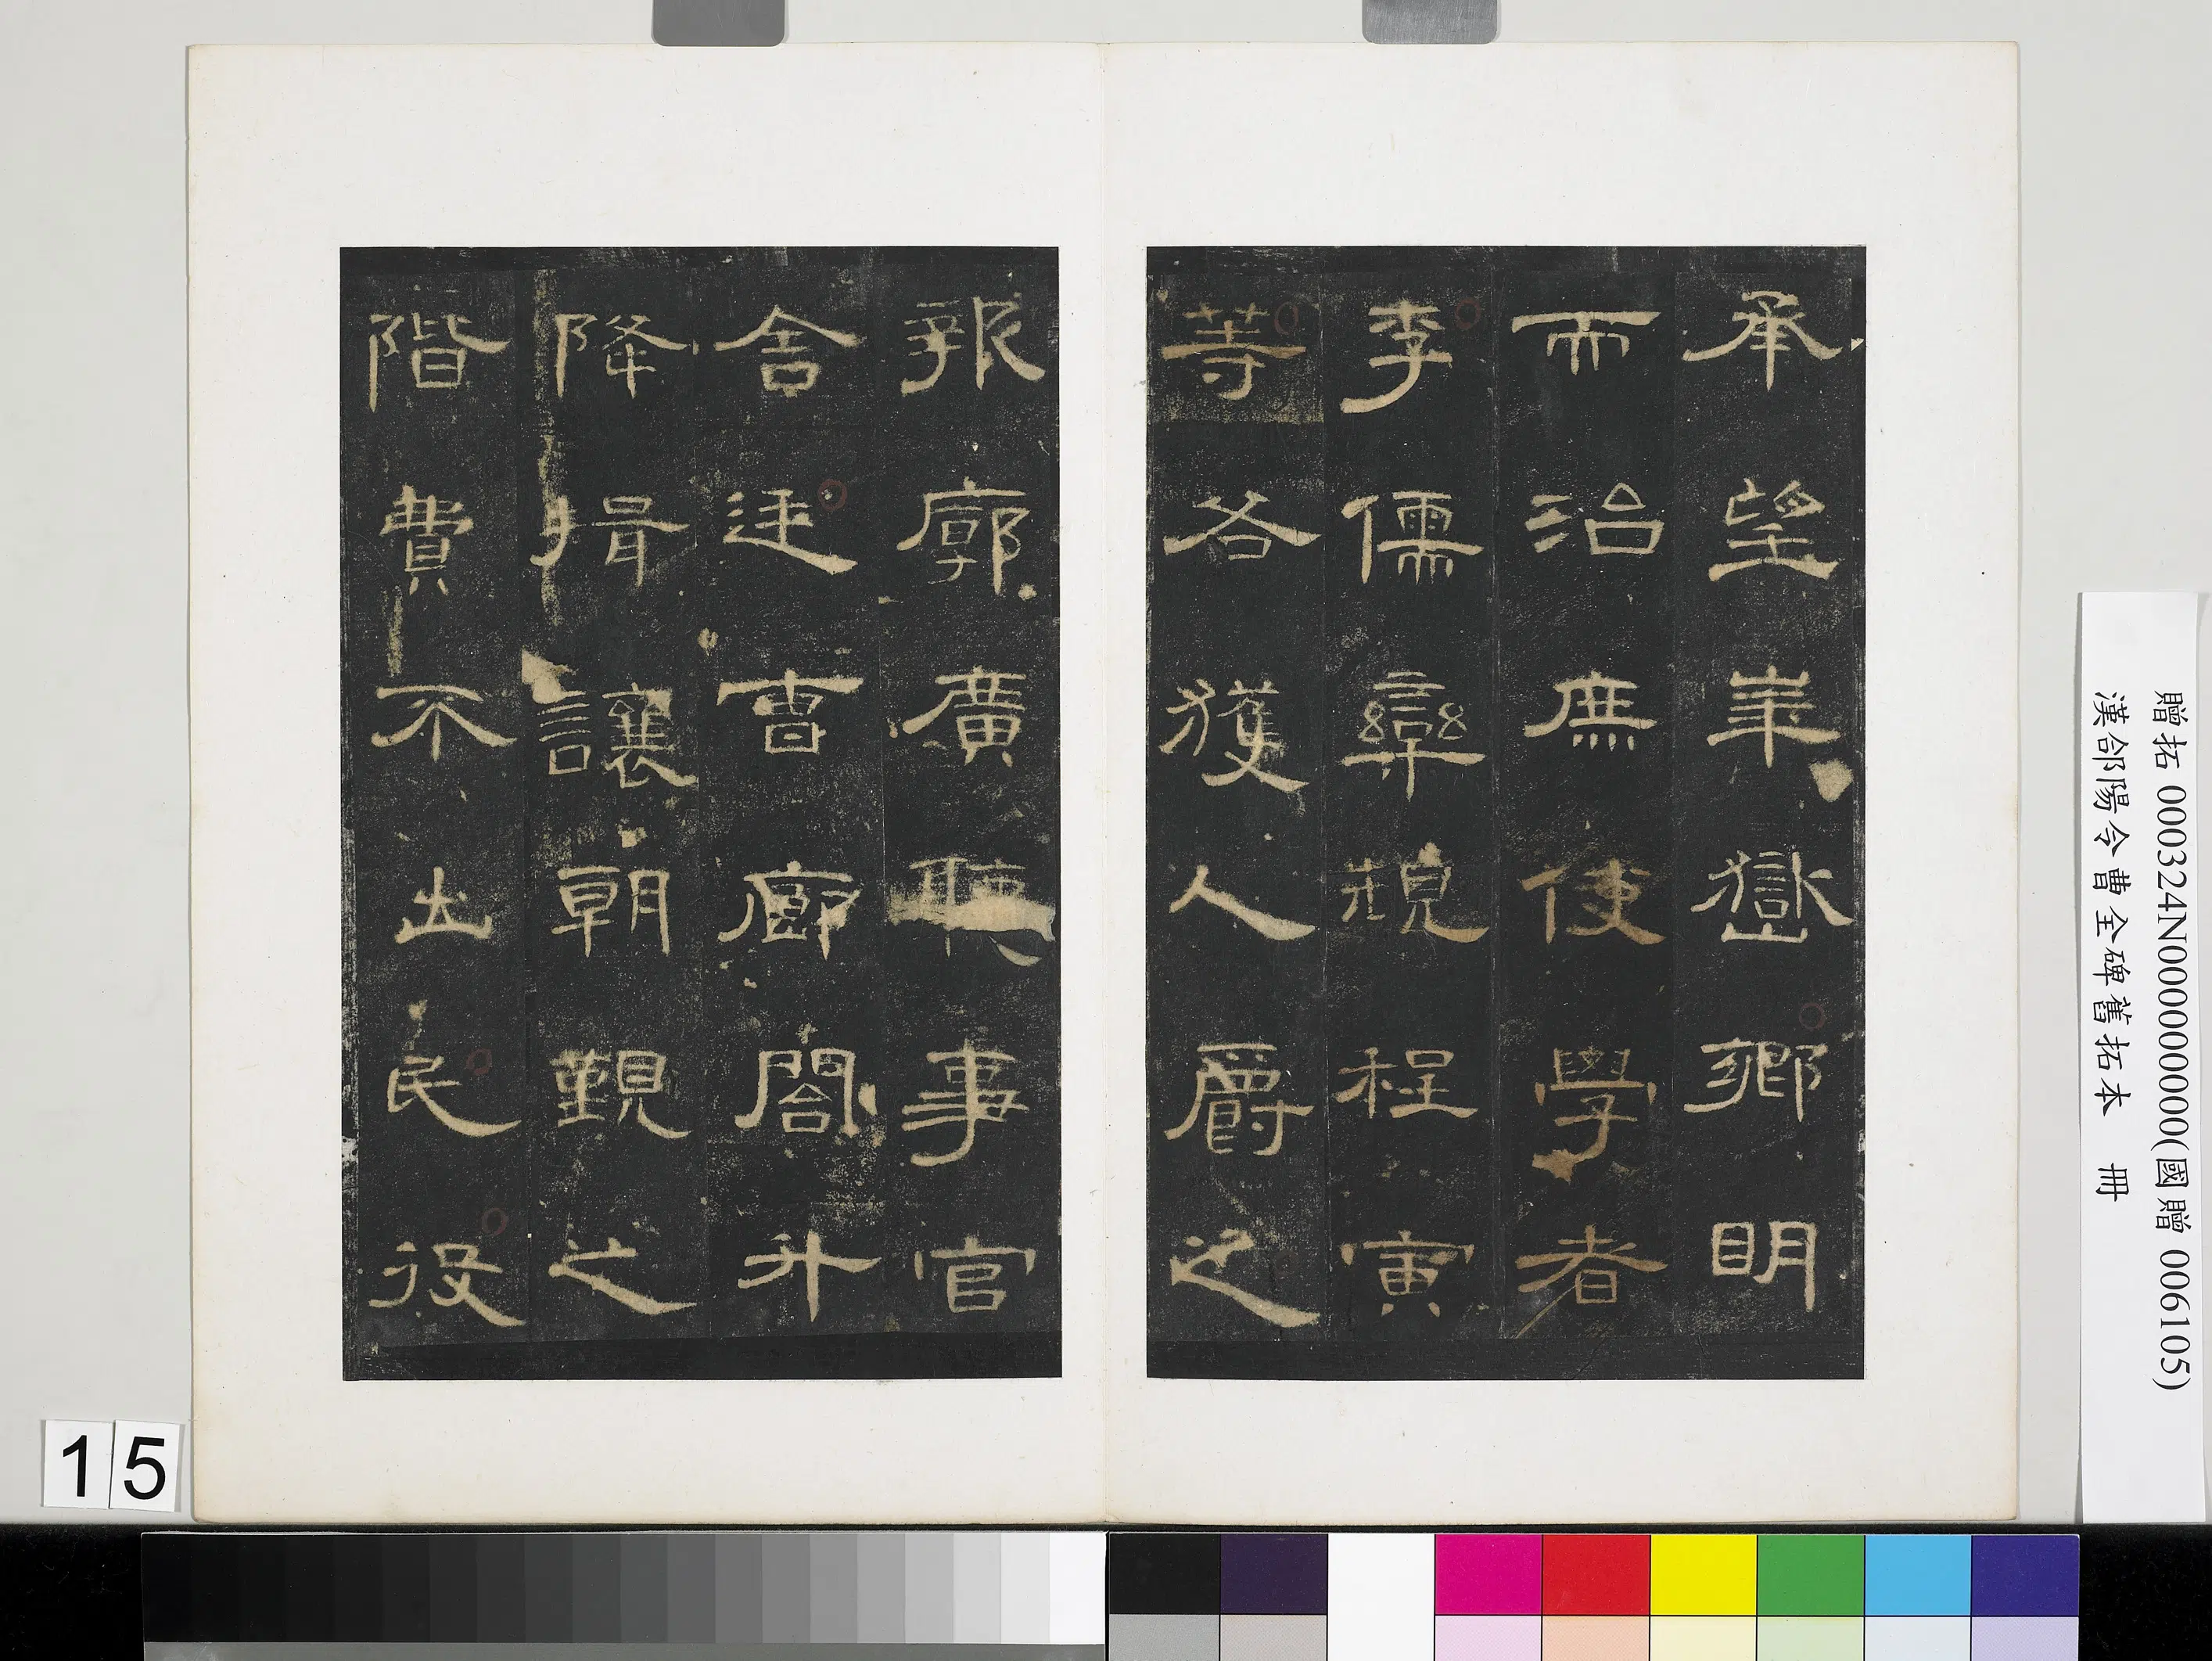 承望崋嶽鄉明
而治庶使學者
李儒欒規程寅
等各獲人爵之
報廓廣聽事官
舍廷曹廊閤升
降揖讓朝覲之
階費不出民役
贈拓 000324N000000000(國贈 006105)
漢郃陽令曹全碑舊拓本 冊
15